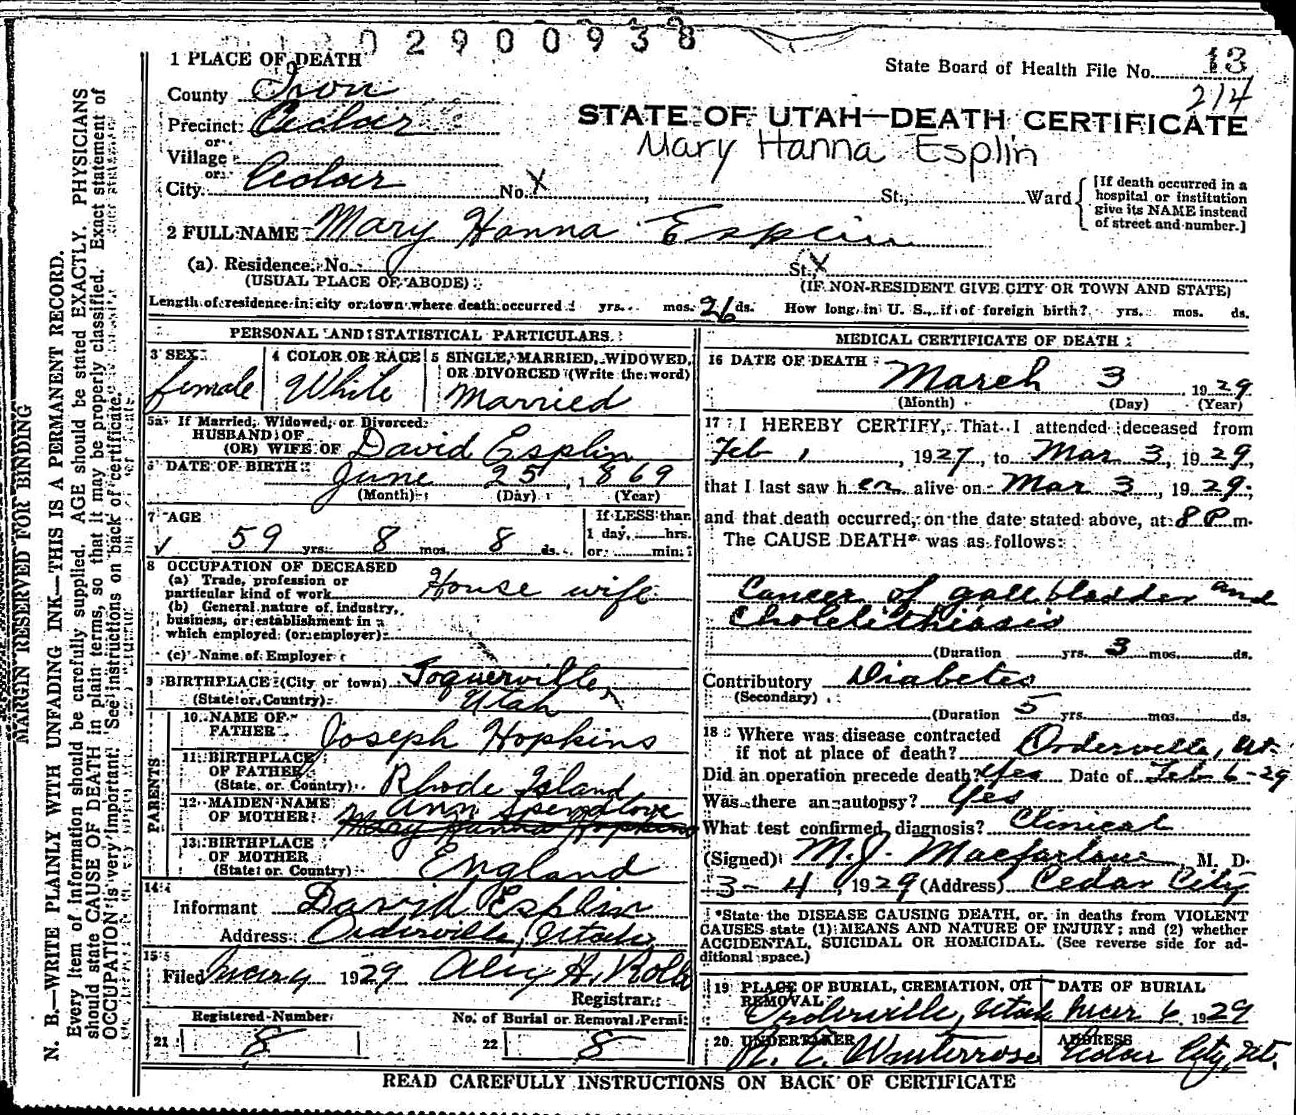 02900938
1 PLACE OF DEATH
State Board of Health File No. 13
214
County Iron
STATE OF UTAH—DEATH CERTIFICATE
Precinct Cedar
Mary Hanna Esplin
or
Village
or
City Cedar No. X St., Ward
[If death occurred in a hospital or institution give its NAME instead of street and number.]
2 FULL NAME Mary Hanna Esplin
(a) Residence No. St., X
(USUAL PLACE OF ABODE) (IF NON-RESIDENT GIVE CITY OR TOWN AND STATE)
Length of residence in city or town where death occurred yrs. mos. 26 ds. How long in U. S., if of foreign birth? yrs. mos. ds.
PERSONAL AND STATISTICAL PARTICULARS
3 SEX female
4 COLOR OR RACE White
5 SINGLE, MARRIED, WIDOWED, OR DIVORCED (Write the word) Married
5a If Married, Widowed, or Divorced
HUSBAND OF
(OR) WIFE OF David Esplin
6 DATE OF BIRTH June 25, 1869
(Month) (Day) (Year)
7 AGE 59 yrs. 8 mos. 8 ds.
If LESS than
1 day, hrs.
or min.
8 OCCUPATION OF DECEASED
(a) Trade, profession or
particular kind of work House wife
(b) General nature of industry,
business, or establishment in
which employed (or employer)
(c) Name of Employer
9 BIRTHPLACE (City or town) Toquerville,
(State or Country) Utah
PARENTS
10 NAME OF
FATHER Joseph Hopkins
11 BIRTHPLACE
OF FATHER
(State or Country) Rhode Island
12 MAIDEN NAME
OF MOTHER Ann Spendlove
Mary Hanna Hopkins
13 BIRTHPLACE
OF MOTHER
(State or Country) England
14
Informant David Esplin
Address Orderville, Utah
15
Filed Mar 4 1929
Registrar
Registered Number
No. of Burial or Removal Permit
21 8
22 8
MEDICAL CERTIFICATE OF DEATH
16 DATE OF DEATH March 3 1929
(Month) (Day) (Year)
17 I HEREBY CERTIFY, That I attended deceased from
Feb 1, 1927, to Mar 3, 1929,
that I last saw her alive on Mar 3, 1929,
and that death occurred, on the date stated above, at 8 P m.
The CAUSE DEATH* was as follows:
Cancer of gall bladder and
Cholelithiasis
(Duration yrs. 3 mos. ds.
Contributory Diabetes
(Secondary)
(Duration 5 yrs. mos. ds.
18 Where was disease contracted
if not at place of death? Orderville, Ut.
Did an operation precede death? Yes Date of Feb 6-29
Was there an autopsy? Yes
What test confirmed diagnosis? Clinical
(Signed) M. J. Macfarlane, M. D.
3-4 1929 (Address) Cedar City
*State the DISEASE CAUSING DEATH, or in deaths from VIOLENT
CAUSES state (1) MEANS AND NATURE OF INJURY; and (2) whether
ACCIDENTAL, SUICIDAL OR HOMICIDAL. (See reverse side for ad-
ditional space.)
19 PLACE OF BURIAL, CREMATION, OR
REMOVAL
Orderville, Utah
DATE OF BURIAL
Mar 6, 1929
20 UNDERTAKER
Winterrose
ADDRESS
Cedar City, Ut.
READ CAREFULLY INSTRUCTIONS ON BACK OF CERTIFICATE
MARGIN RESERVED FOR BINDING
N. B.—WRITE PLAINLY WITH UNFADING INK—THIS IS A PERMANENT RECORD.
Every item of information should be carefully supplied. AGE should be stated EXACTLY. PHYSICIANS
should state CAUSE OF DEATH in plain terms, so that it may be properly classified. Exact statement of
OCCUPATION is very important. See instructions on back of certificate.